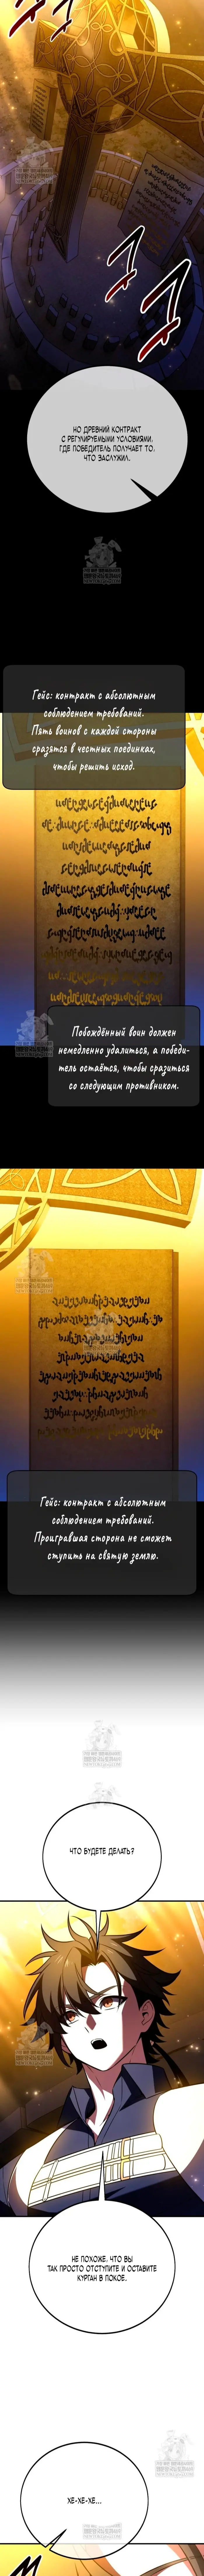 НО ДРЕВНИЙ КОНТРАКТ
С РЕГУЛИРУЕМЫМИ УСЛОВИЯМИ,
ГДЕ ПОБЕДИТЕЛЬ ПОЛУЧАЕТ ТО,
ЧТО ЗАСЛУЖИЛ.
Гейс: контракт с абсолютным
соблюдением требований.
Пять воинов с каждой стороны
сразятся в честных поединках,
чтобы решить исход.
Побеждённый воин должен
немедленно удалиться, а победи-
тель остаётся, чтобы сразиться
со следующим противником.
Гейс: контракт с абсолютным
соблюдением требований.
Проигравшая сторона не сможет
ступить на святую землю.
ЧТО БУДЕТЕ ДЕЛАТЬ?
НЕ ПОХОЖЕ, ЧТО ВЫ
ТАК ПРОСТО ОТСТУПИТЕ И ОСТАВИТЕ
КУРГАН В ПОКОЕ.
ХЕ-ХЕ-ХЕ...